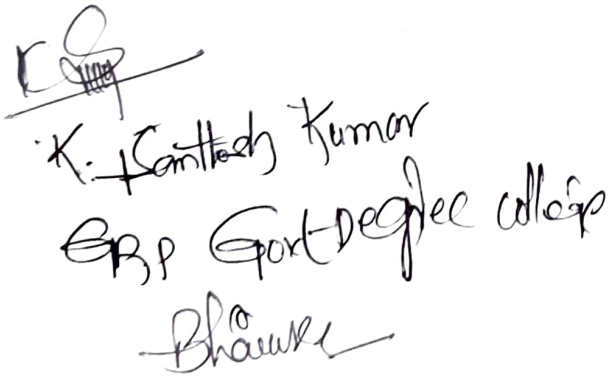 K. Santhosh Kumar
GRP Govt Degree college